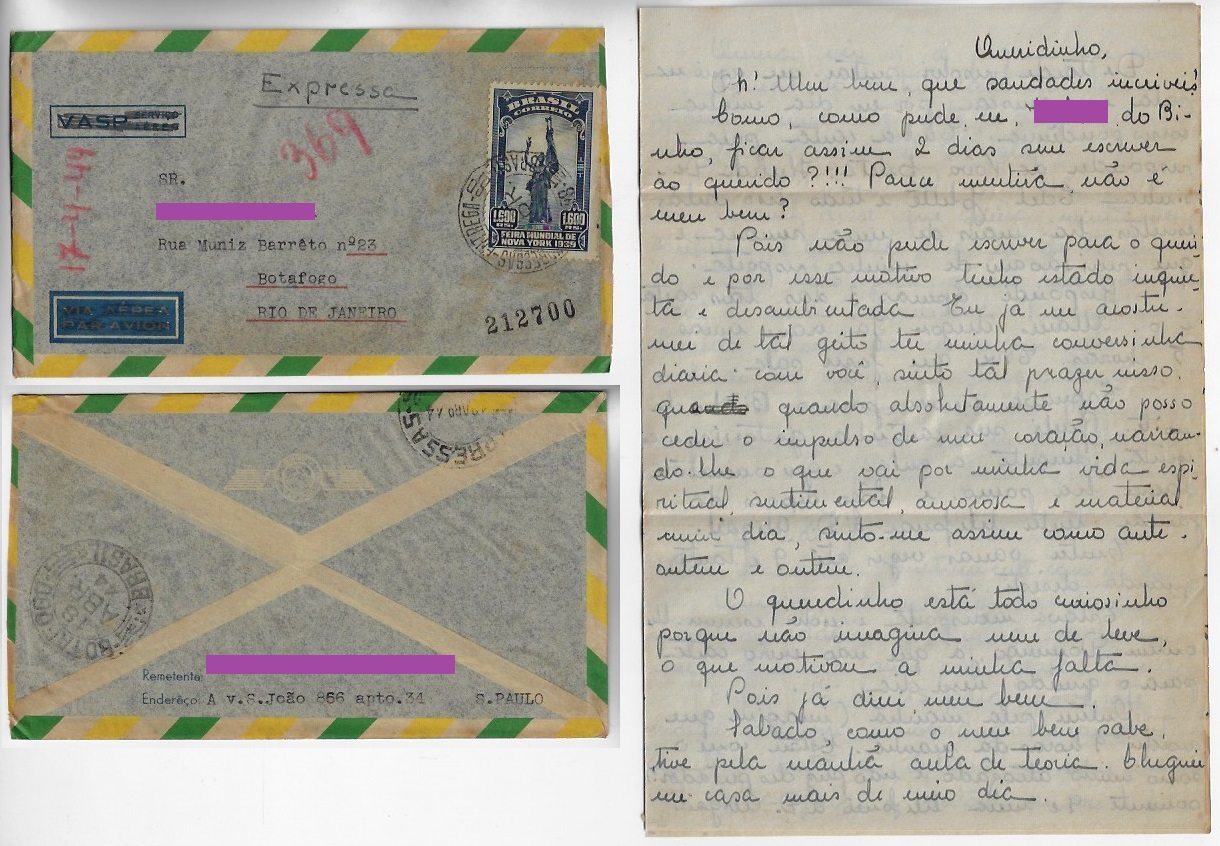 Expressa
VASP SERVIÇO AÉREO
369
17-4-44
BRASIL
CORREIO
1.600 RS. 1.600 RS.
FEIRA MUNDIAL DE
NOVA YORK 1939
SR.
Rua Muniz Barrêto nº23
Botafogo
RIO DE JANEIRO
VIA AÉREA
PAR AVION
212700
EXPRESSAS
BOTAFOGO BRASIL
18 ABR 44
Remetente:
Enderêço: A v.S.João 866 apto.34 S.PAULO
Queridinho,
Oh! Meu bem, que saudades incriveis!
Como, como pude, eu, do Bi-
nho, ficar assim 2 dias sem escrever
ao querido ?!!! Parece mentira, não é
meu bem?
Pois não pude escrever para o queri-
do e por esse motivo tenho estado inquie-
ta e desambientada. Eu já me acostu-
mei de tal geito ter minha conversinha
diaria com você, sinto tal prazer nisso.
quando absolutamente não posso
ceder o impulso de meu coração, narran-
do-lhe o que vai por minha vida espi-
ritual, sentimental, amorosa e material
dia, sinto-me assim como ante-
ontem e ontem.
O queredinho está todo curiosinho
porque não imagina nem de leve,
o que motivou a minha falta.
Pois já direi, meu bem.
Sabado, como o meu bem sabe,
tive pela manhã aula de teoria. Cheguei
em casa mais de meio dia.